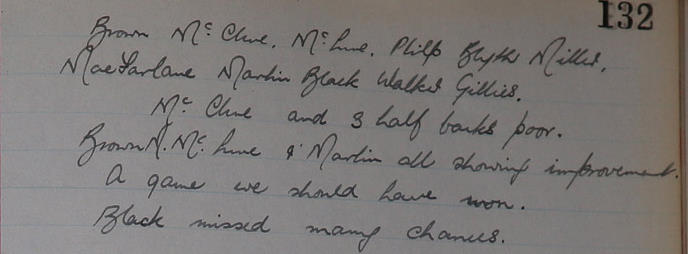 132
Brown McClure. McLure. Philp Blyth Miller.
MacFarlane Martin Black Walker Gillies.
McClure and 3 half backs poor.
Brown N. McLure & Martin all showing improvement.
A game we should have won.
Black missed many chances.